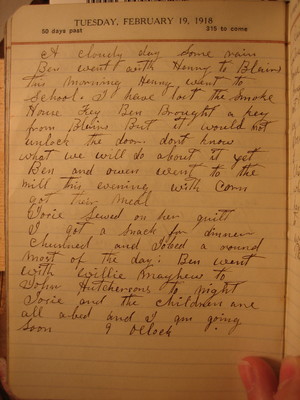 TUESDAY, FEBRUARY 19, 1918
50 days past 315 to come
A cloudy day Some rain
Ben went with Henny to Blains
this morning Henny went to
School. I have lost the Smoke
House Key Ben Brought a key
from Blains But it would not
unlock the door. dont know
what we will do about it yet
Ben and owen went to the
mill this evening with Corn
got their meal
Josie Sewed on her quilt
I got a Snack for dinner
Churned and Jobed a round
most of the day: Ben went
with Willie Mayhew to
John Hutchersons to night
Josie and the children are
all abed and I am going
Soon 9 oClock